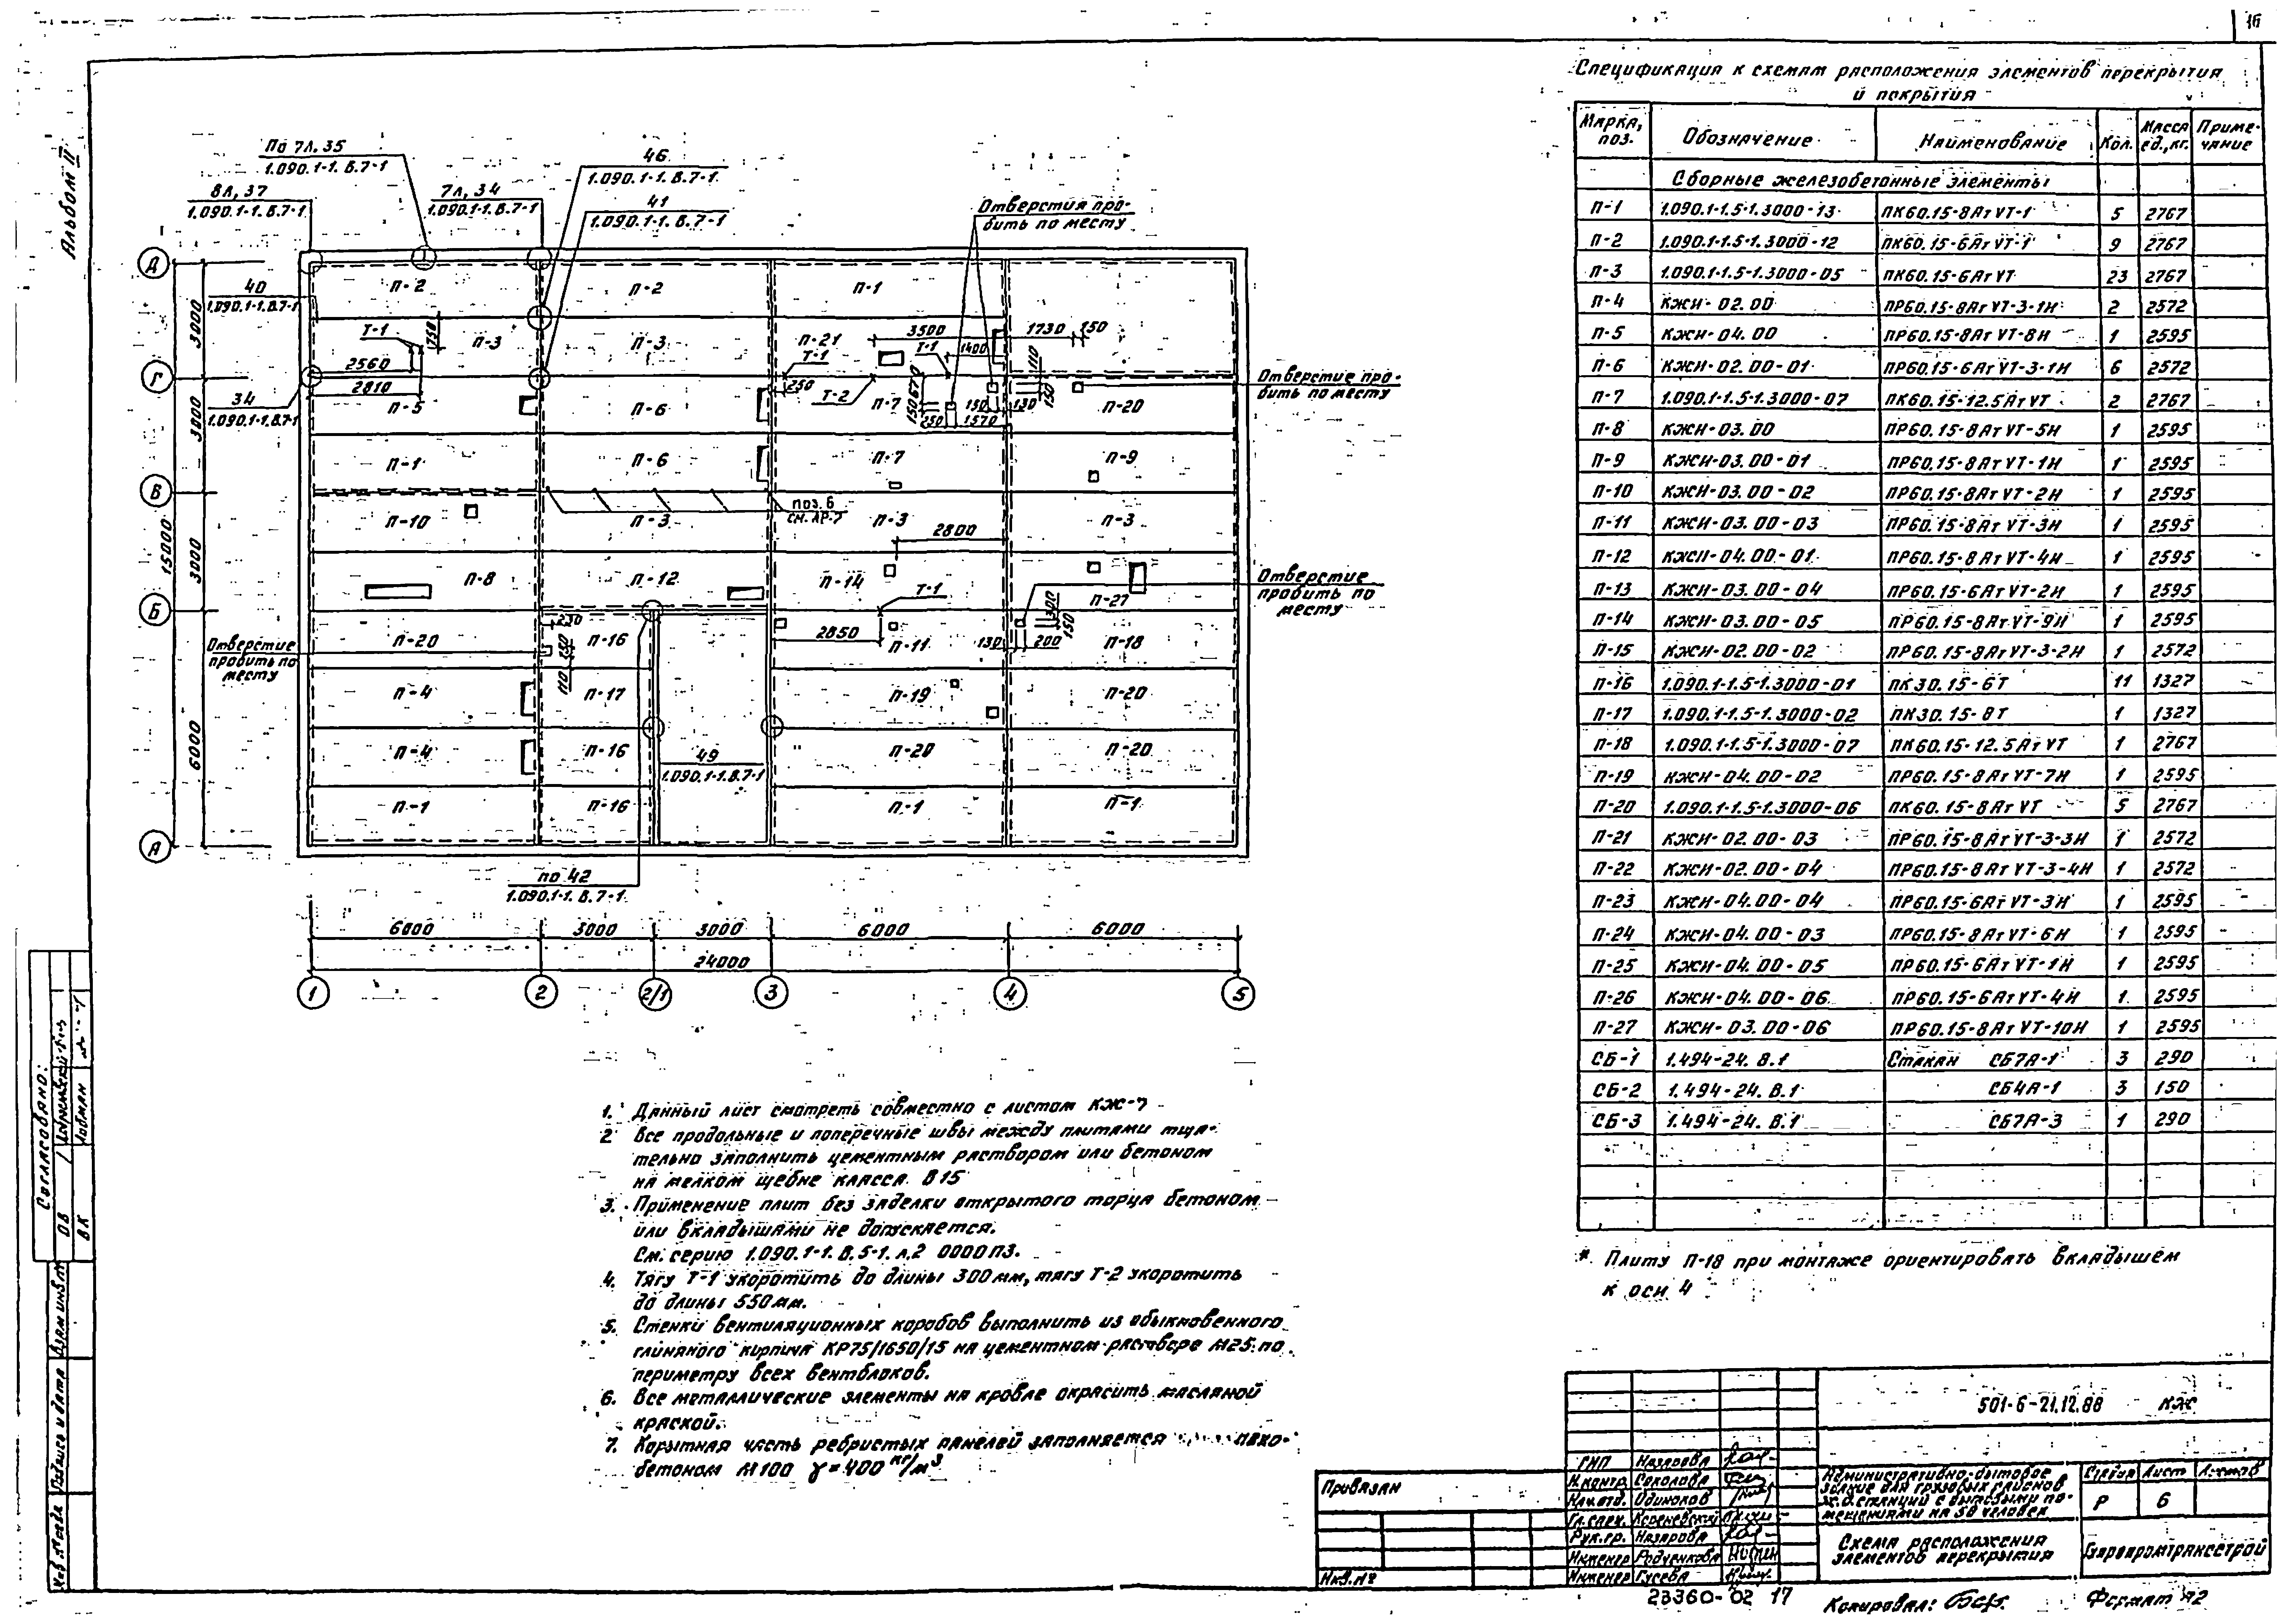 16
Альбом II
Спецификация к схемам расположения элементов перекрытия
и покрытия
Марка, поз. Обозначение Наименование Кол. Масса ед., кг. Приме-чание
Сборные железобетонные элементы
П-1 1.090.1-1.5-1.3000-13 ПК60.15-8АтVТ-1 5 2767
П-2 1.090.1-1.5-1.3000-12 ПК60.15-6АтVТ-1 9 2767
П-3 1.090.1-1.5-1.3000-05 ПК60.15-6АтVТ 23 2767
П-4 КЖИ-02.00 ПР60.15-8АтVТ-3-1Н 2 2572
П-5 КЖИ-04.00 ПР60.15-8АтVТ-8Н 1 2595
П-6 КЖИ-02.00-01 ПР60.15-6АтVТ-3-1Н 6 2572
П-7 1.090.1-1.5-1.3000-07 ПК60.15-12.5АтVТ 2 2767
П-8 КЖИ-03.00 ПР60.15-8АтVТ-5Н 1 2595
П-9 КЖИ-03.00-01 ПР60.15-8АтVТ-1Н 1 2595
П-10 КЖИ-03.00-02 ПР60.15-8АтVТ-2Н 1 2595
П-11 КЖИ-03.00-03 ПР60.15-8АтVТ-3Н 1 2595
П-12 КЖИ-04.00-01 ПР60.15-8АтVТ-4Н 1 2595
П-13 КЖИ-03.00-04 ПР60.15-6АтVТ-2Н 1 2595
П-14 КЖИ-03.00-05 ПР60.15-8АтVТ-9Н 1 2595
П-15 КЖИ-02.00-02 ПР60.15-8АтVТ-3-2Н 1 2572
П-16 1.090.1-1.5-1.3000-01 ПК30.15-6Т 11 1327
П-17 1.090.1-1.5-1.3000-02 ПК30.15-8Т 1 1327
П-18 1.090.1-1.5-1.3000-07 ПК60.15-12.5АтVТ 1 2767
П-19 КЖИ-04.00-02 ПР60.15-8АтVТ-7Н 1 2595
П-20 1.090.1-1.5-1.3000-06 ПК60.15-8АтVТ 5 2767
П-21 КЖИ-02.00-03 ПР60.15-8АтVТ-3-3Н 1 2572
П-22 КЖИ-02.00-04 ПР60.15-8АтVТ-3-4Н 1 2572
П-23 КЖИ-04.00-04 ПР60.15-6АтVТ-3Н 1 2595
П-24 КЖИ-04.00-03 ПР60.15-8АтVТ-6Н 1 2595
П-25 КЖИ-04.00-05 ПР60.15-6АтVТ-1Н 1 2595
П-26 КЖИ-04.00-06 ПР60.15-6АтVТ-4Н 1 2595
П-27 КЖИ-03.00-06 ПР60.15-8АтVТ-10Н 1 2595
СБ-1 1.494-24.В.1 Стакан СБ7А-1 3 290
СБ-2 1.494-24.В.1 СБ4А-1 3 150
СБ-3 1.494-24.В.1 СБ7А-3 1 290
* Плиту П-18 при монтаже ориентировать вкладышем
к оси 4
По 7л, 35
1.090.1-1.В.7-1
8л, 37
1.090.1-1.В.7-1
7л, 34
1.090.1-1.В.7-1
46
1.090.1-1.В.7-1
41
1.090.1-1.В.7-1
Отверстия про-
бить по месту
40
1.090.1-1.В.7-1
34
1.090.1-1.В.7-1
Д
Г
В
Б
А
3000
3000
3000
6000
15000
П-2 П-2 П-1
Т-1 750 П-3 П-3 П-21 3500 1730 150
Т-1 Т-1 1400 110
2560
2810
250 Т-2 670 150
П-5 П-6 П-7 150 130 150 П-20
250 1570
Отверстие про-
бить по месту
П-1 П-6 П-7 П-9
П-10 П-3 поз.6 П-3 П-3
см. АР-7
2800
П-8 П-12 П-14 Т-1 П-27
Отверстие
пробить по
месту
Отверстие
пробить по
месту
230 300 150
П-20 П-16 2850 П-11 130 200 П-18
250 110
П-4 П-17 П-19 П-20
П-4 П-16 П-20 П-20
49
1.090.1-1.В.7-1
П-1 П-16 П-1 П-1
по 42
1.090.1-1.В.7-1
6000 3000 3000 6000 6000
24000
1 2 2/1 3 4 5
1. Данный лист смотреть совместно с листом КЖ-7
2 Все продольные и поперечные швы между плитами тща-
тельно заполнить цементным раствором или бетоном
на мелком щебне класса В15
3. Применение плит без заделки открытого торца бетоном
или вкладышами не допускается.
См. серию 1.090.1-1.В.5-1.л.2 0000ПЗ.
4. Тягу Т-1 укоротить до длины 300мм, тягу Т-2 укоротить
до длины 550мм.
5. Стенки вентиляционных коробов выполнить из обыкновенного
глиняного кирпича КР75/1650/15 на цементном растворе М25 по
периметру всех вентблоков.
6. Все металлические элементы на кровле окрасить масляной
краской.
7. Корытная часть ребристых панелей заполняется
бетоном М100 γ=400 кг/м3
Согласовано:
ОВ
ВК Лобман
Взам инв №
Подпись и дата
Привязан
Инв.№
501-6-21.12.88 КЖ
ГИП Назарова
Н.контр Соколова
Нач.отд. Одиноков
Гл.спец. Кореневский
Рук.гр. Назарова
Инженер Родченкова
Инженер Гусева
Административно-бытовое
здание для грузовых районов
ж.д. станций с бытовыми по-
мещениями на 50 человек
Стадия Лист Листов
Р 6
Схема расположения
элементов перекрытия
Гипропромтрансстрой
23360-02 17
Копировал:
Формат А2